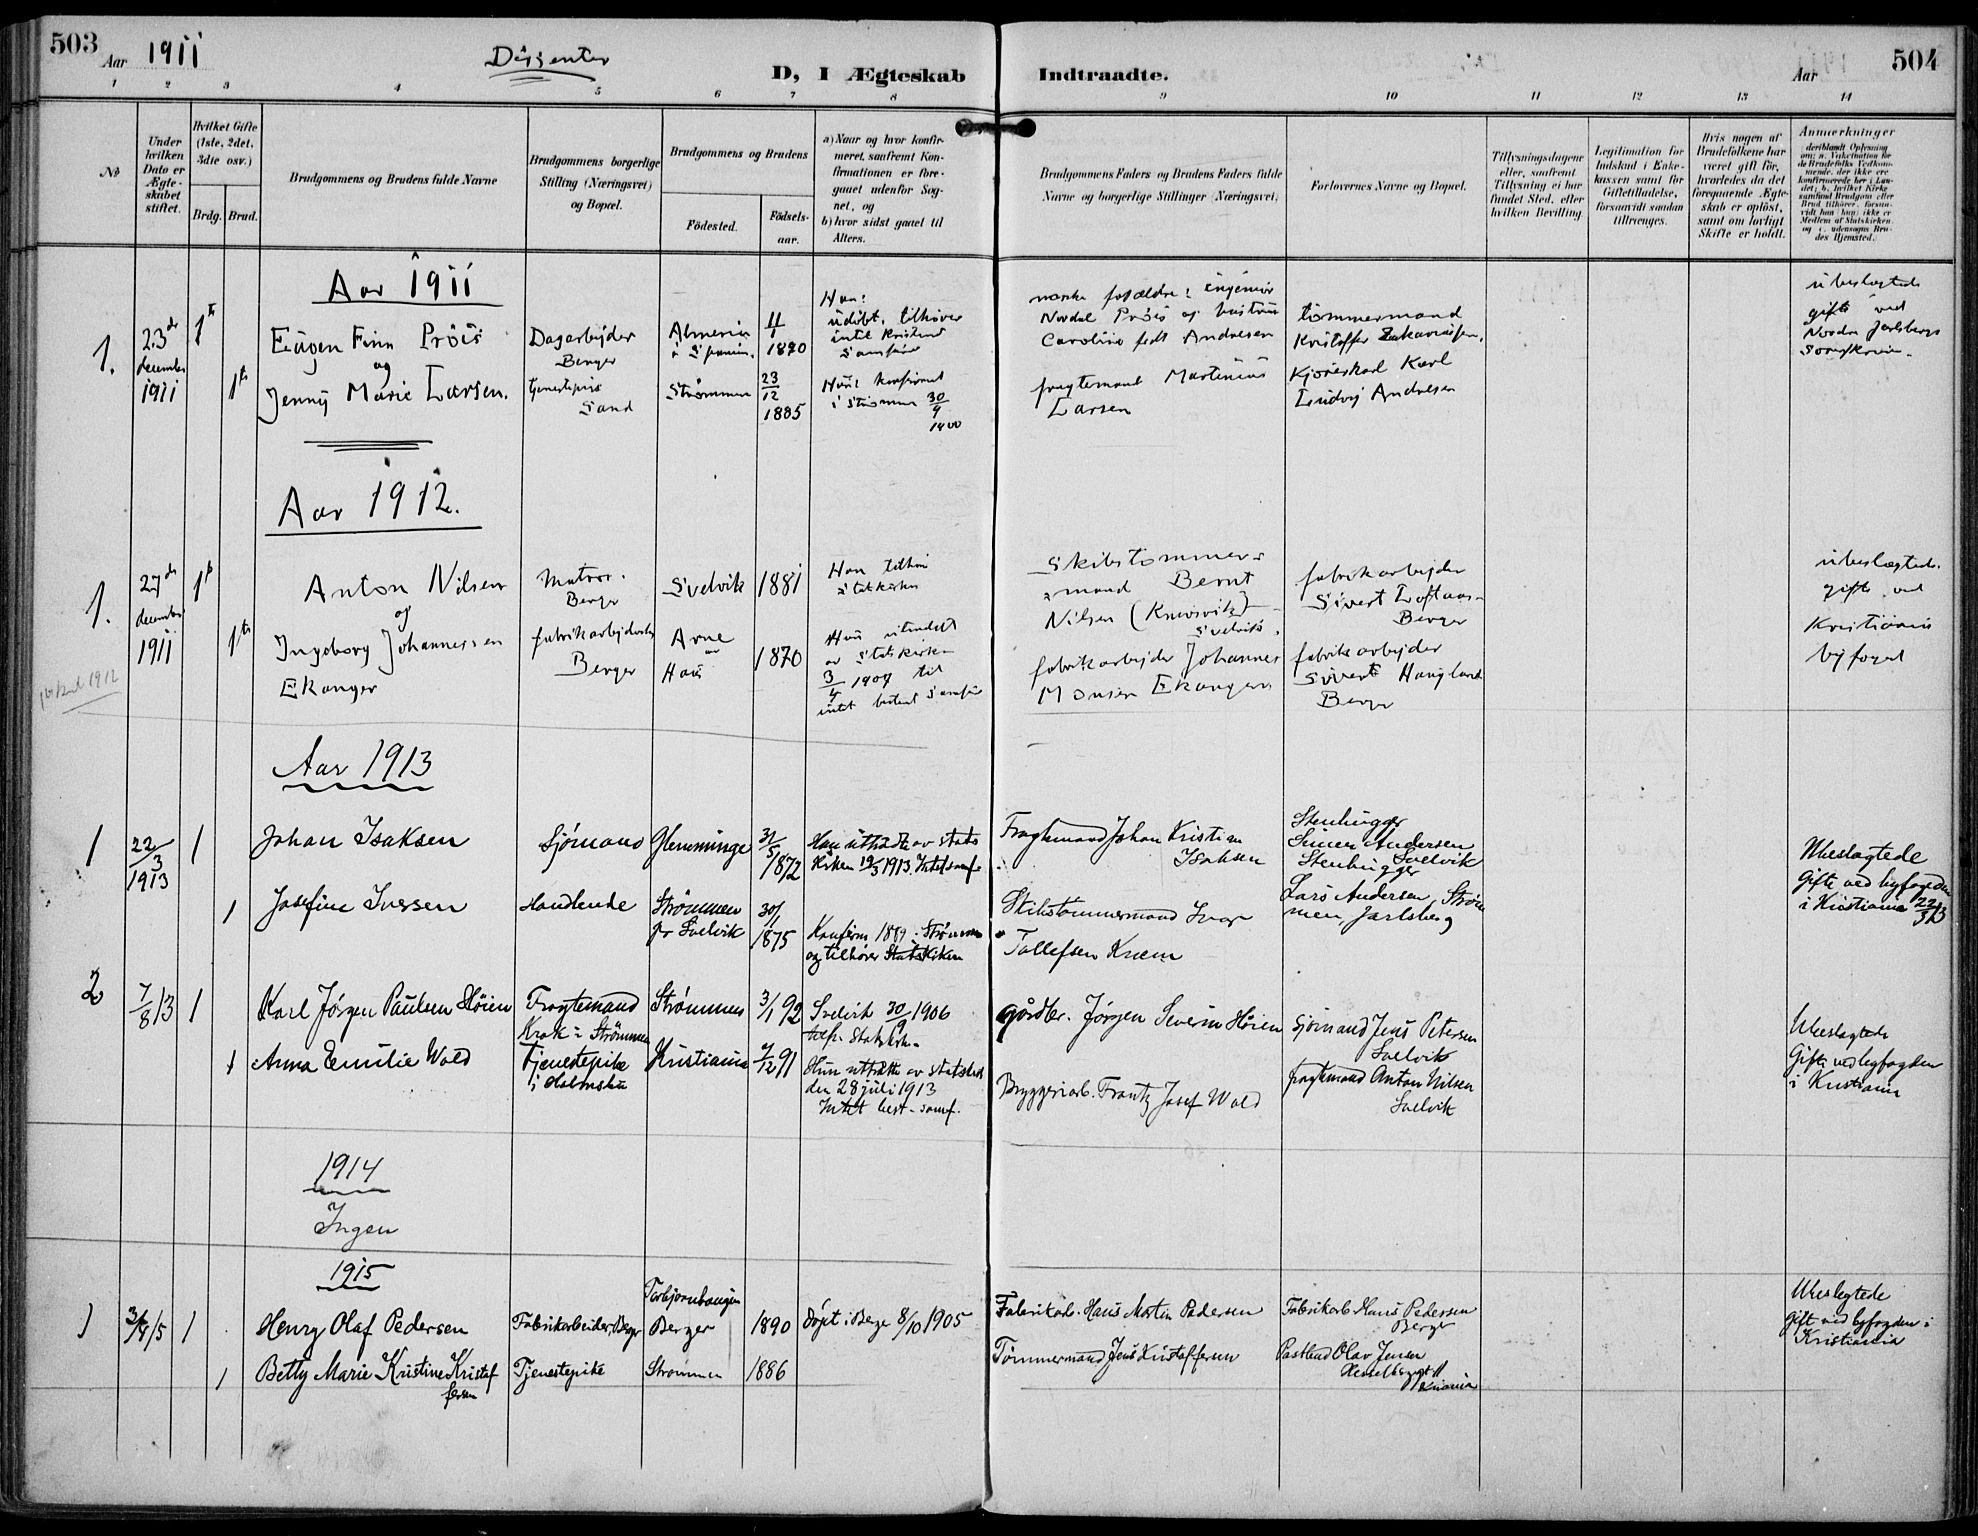 503
Aar 1911
Dissenter
D, I Ægteskab
Indtraadte.
Aar
504
1 2 3 4 5 6 7 8 9 10 11 12 13 14
No
Under hvilken Dato er Ægteskabet stiftet.
Hvilket Gifte (1ste, 2det, 3die osv.)
Brdg. Brud.
Brudgommens og Brudens fulde Navne
Brudgommens borgerlige Stilling (Næringsvei) og Bopæl.
Brudgommens og Brudens
Fødested.
Fødselsaar.
a) Naar og hvor konfirmeret, saafremt Konfirmationen er foregaaet udenfor Sognet, og
b) hvor sidst gaaet til Alters.
Brudgommens Faders og Brudens Faders fulde Navne og borgerlige Stillinger (Næringsvei)
Forlovernes Navne og Bopæl.
Tillysningsdagene eller, saafremt Tillysning ei har fundet Sted, efter hvilken Bevilling
Legitimation for Indskud i Enkekassen samt for Giftetilladelse, forsaavidt saadan tiltrænges.
Hvis nogen af Brudefolkene har været gift før, hvorledes da det foregaaende Ægteskab er opløst, samt om lovligt Skifte er holdt.
Anmerkninger
deriblandt Oplysning om: a. Vakcination for de Brudefolks Vedkommende, der ikke ere konfirmerede her i Landet; b. hvilket Kirkesamfund Brudgom eller Brud tilhører, forsaavidt han (hun) ikke er Medlem af Statskirken, og c. udensogns Brudes Hjemsted.
Aar 1911
1. 23de december 1911
1te
Eugen Finn Prøis
og
Dagarbeider Berger
Almeria i Spanien.
11/1 1890
Han: udøbt, tilhører intet kristent samfund
norske forældre: ingeniør Nordal Prøis og hustru Caroline født Andresen
tømmermand Kristoffer Zakariassen.
ubeslægtede gifte ved Nordre Jarlsbergs Sorenskriver.
1te
Jenny Marie Larsen.
tjenestepige Sand
Strømmen
23/12 1885
Hun: konfirmert i Strømmen 30/9 1900
fragtemand Martinius Larsen
Kjøreskarl Karl Ludvig Andresen
Aar 1912.
1. 27de december 1911
1te
Anton Nilsen
og
Matros. Berger
Svelvik
1881
Han tilhører statskirken
Skibstømmermand Bernt Nilsen
Svelvik.
fabrikarbejder Sivert Loftaas Berger
ubeslægtede. gifte ved Kristiania byfoged
1te
Ingeborg Johannessen Ekanger
fabrikarbejderske Berger
Arne
Haus
1870
Hun utmeldt av Statskirken 3/4 1907 til intet bestemt samfund
fabrikarbejder Johannes Monsen Ekanger
fabrikarbejder Sivert Haugland Berger
1912
Aar 1913
1 22/3 1913 1
Johan Isaksen
Sjømand
Glemminge
31/5 1872
Han uttraadte av statskirken 19/3 1913. Intet samf.
Fragtemand Johan Kristian Isaksen
Stenhugger Simen Andersen Svelvik
Ubeslægtede Gifte ved byfogden i Kristiania 22/3 13
1
Josefine Iversen
Handlende
Strømmen pr Svelvik
30/1 1875
Konfirm 1889 i Strømmen og tilhører Statskirken
Skibstømmermand Ivar Tollefsen Knem
Stenhugger Lars Andersen, Strømmen, Jarlsberg
2 7/8 13 1
Karl Jørgen Paulsen Høien
Fragtemand Krok i Strømmen
Strømmen
3/1 92
Svelvik 30/9 1906 tilh. Statskirk.
gårdbr. Jørgen Severin Høien
Sjømand Jens Petersen Svelvik
Ubeslægtede Gifte ved byfogden i Kristiania
1
Anna Emilie Wold
Tjenestepike i Holmsbu
Kristiania
7/12 91
Hun uttrådte av statskirk den 28 juli 1913 Intet best. samf.
Bryggeriarb. Frantz Josef Wold
fragtmand Anton Nilsen Svelvik
1914
Ingen
1915
1 1
Henry Olaf Pedersen
Fabrikarbeider, Berger
Torbjørnbaugen Berger
1890
Døpt i Berge 8/10 1905
Fabrikarb. Hans Martin Pedersen
Fabrikarb Hans Pedersen Berger
Ubeslegtede Gift ved byfogden i Kristiania
1
Betty Marie Kristine Kristoffersen
Tjenestepike
Strømmen
1886
Tømmermand Jens Kristoffersen
Postbud Olav Jensen
Kristiania